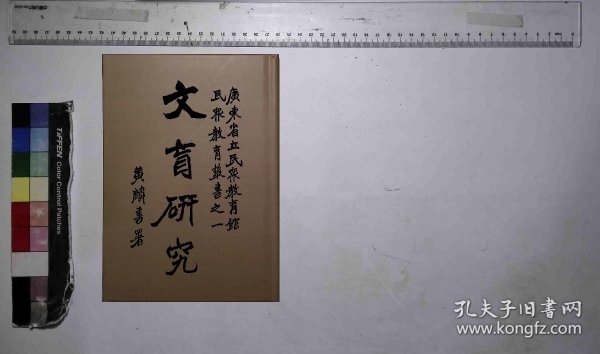 廣東省立民眾教育館
民眾教育叢書之一
文盲研究
黃麟書署
TIFFEN Color Control Patches
孔夫子旧书网
www.kongfz.com